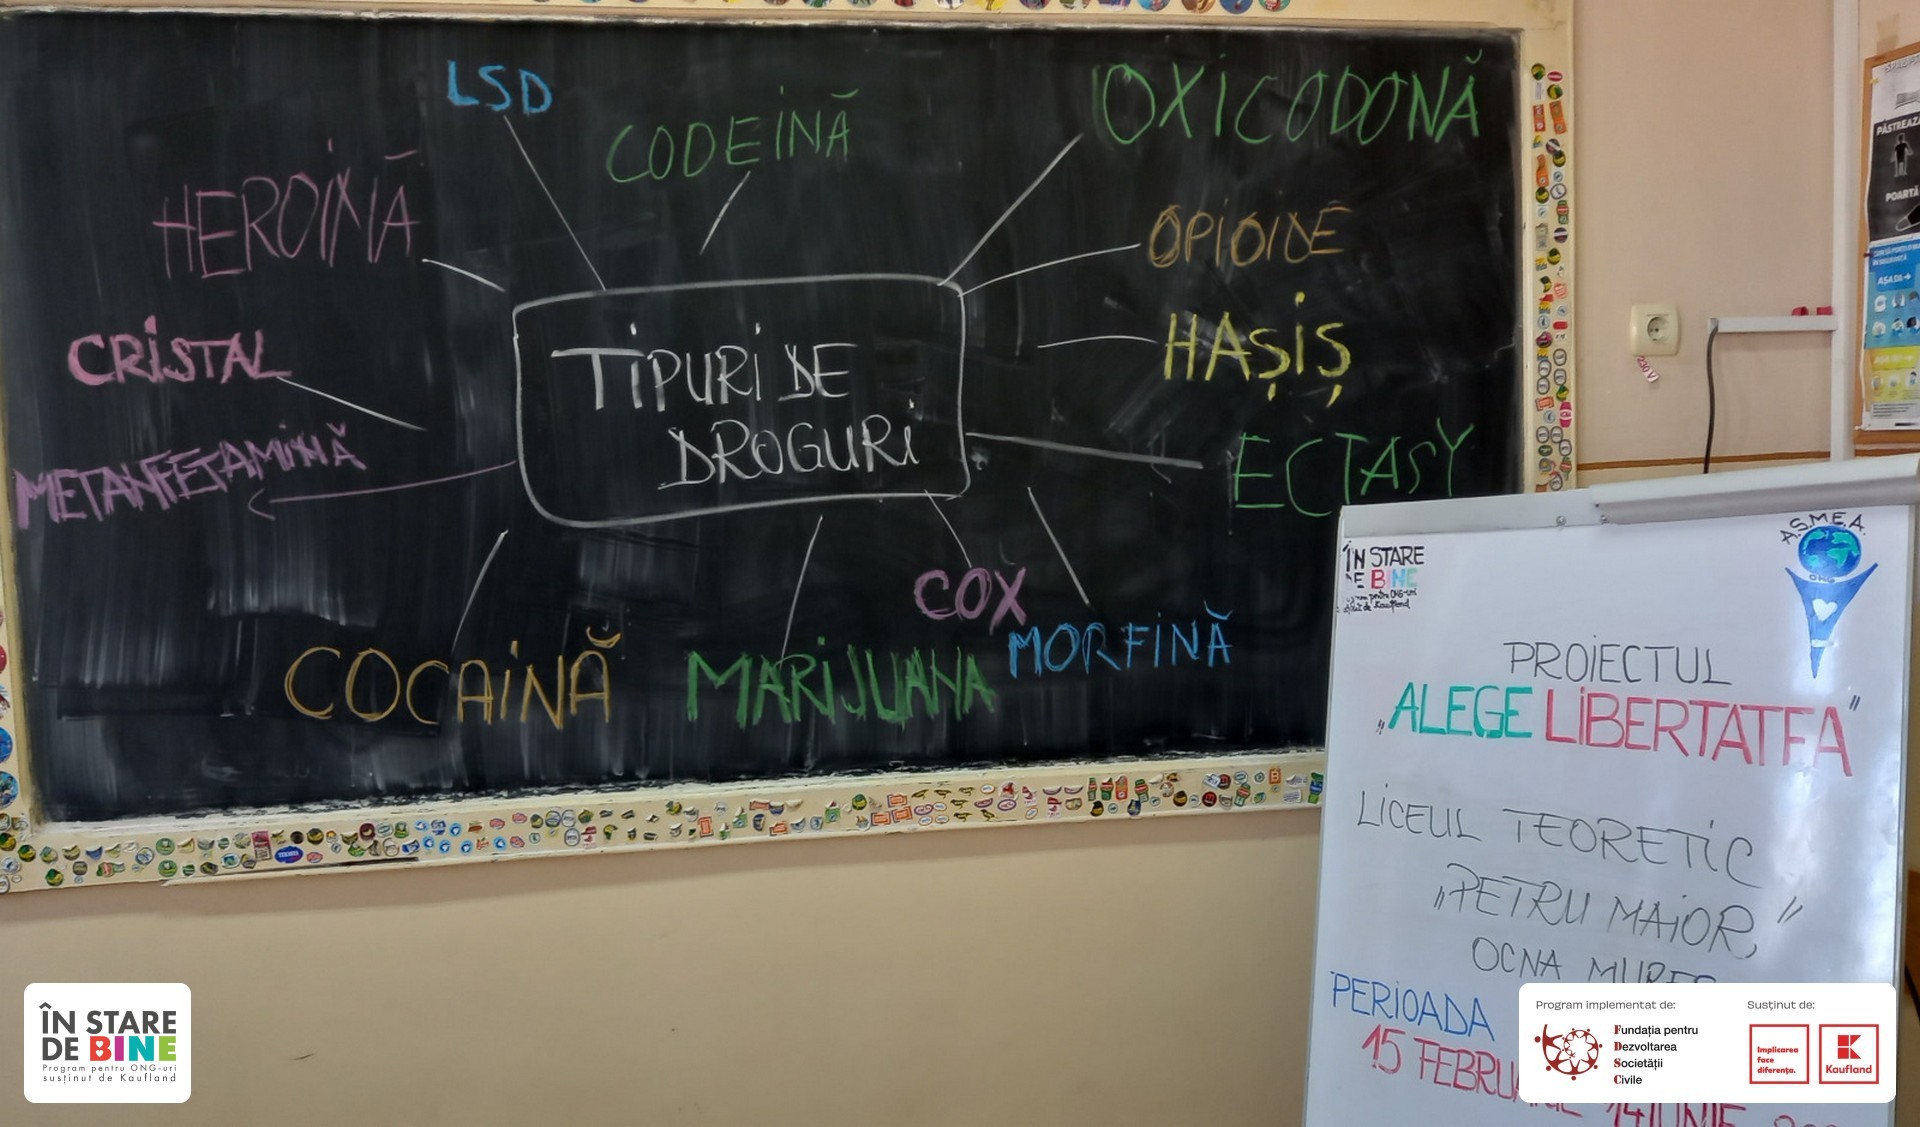 LSD
CODEINĂ
OXICODONĂ
HEROINĂ
OPIOIDE
CRISTAL
HAȘIȘ
TIPURI DE
DROGURI
METANFETAMINĂ
ECTASY
COX
MORFINĂ
COCAINĂ
MARIJUANA
PĂSTREAZĂ
POARTĂ
AȘA DA
230 V
ÎN STARE
DE BINE
de Kaufland
A.S.M.E.A.
ONG
PROIECTUL
„ALEGE LIBERTATEA"
LICEUL TEORETIC
„PETRU MAIOR"
OCNA MUREȘ
PERIOADA
15 FEBRUARIE 14 IUNIE
ÎN STARE
DE BINE
Program pentru ONG-uri
susținut de Kaufland
Program implementat de:
Fundația pentru
Dezvoltarea
Societății
Civile
Susținut de:
Implicarea
face
diferența.
K
Kaufland